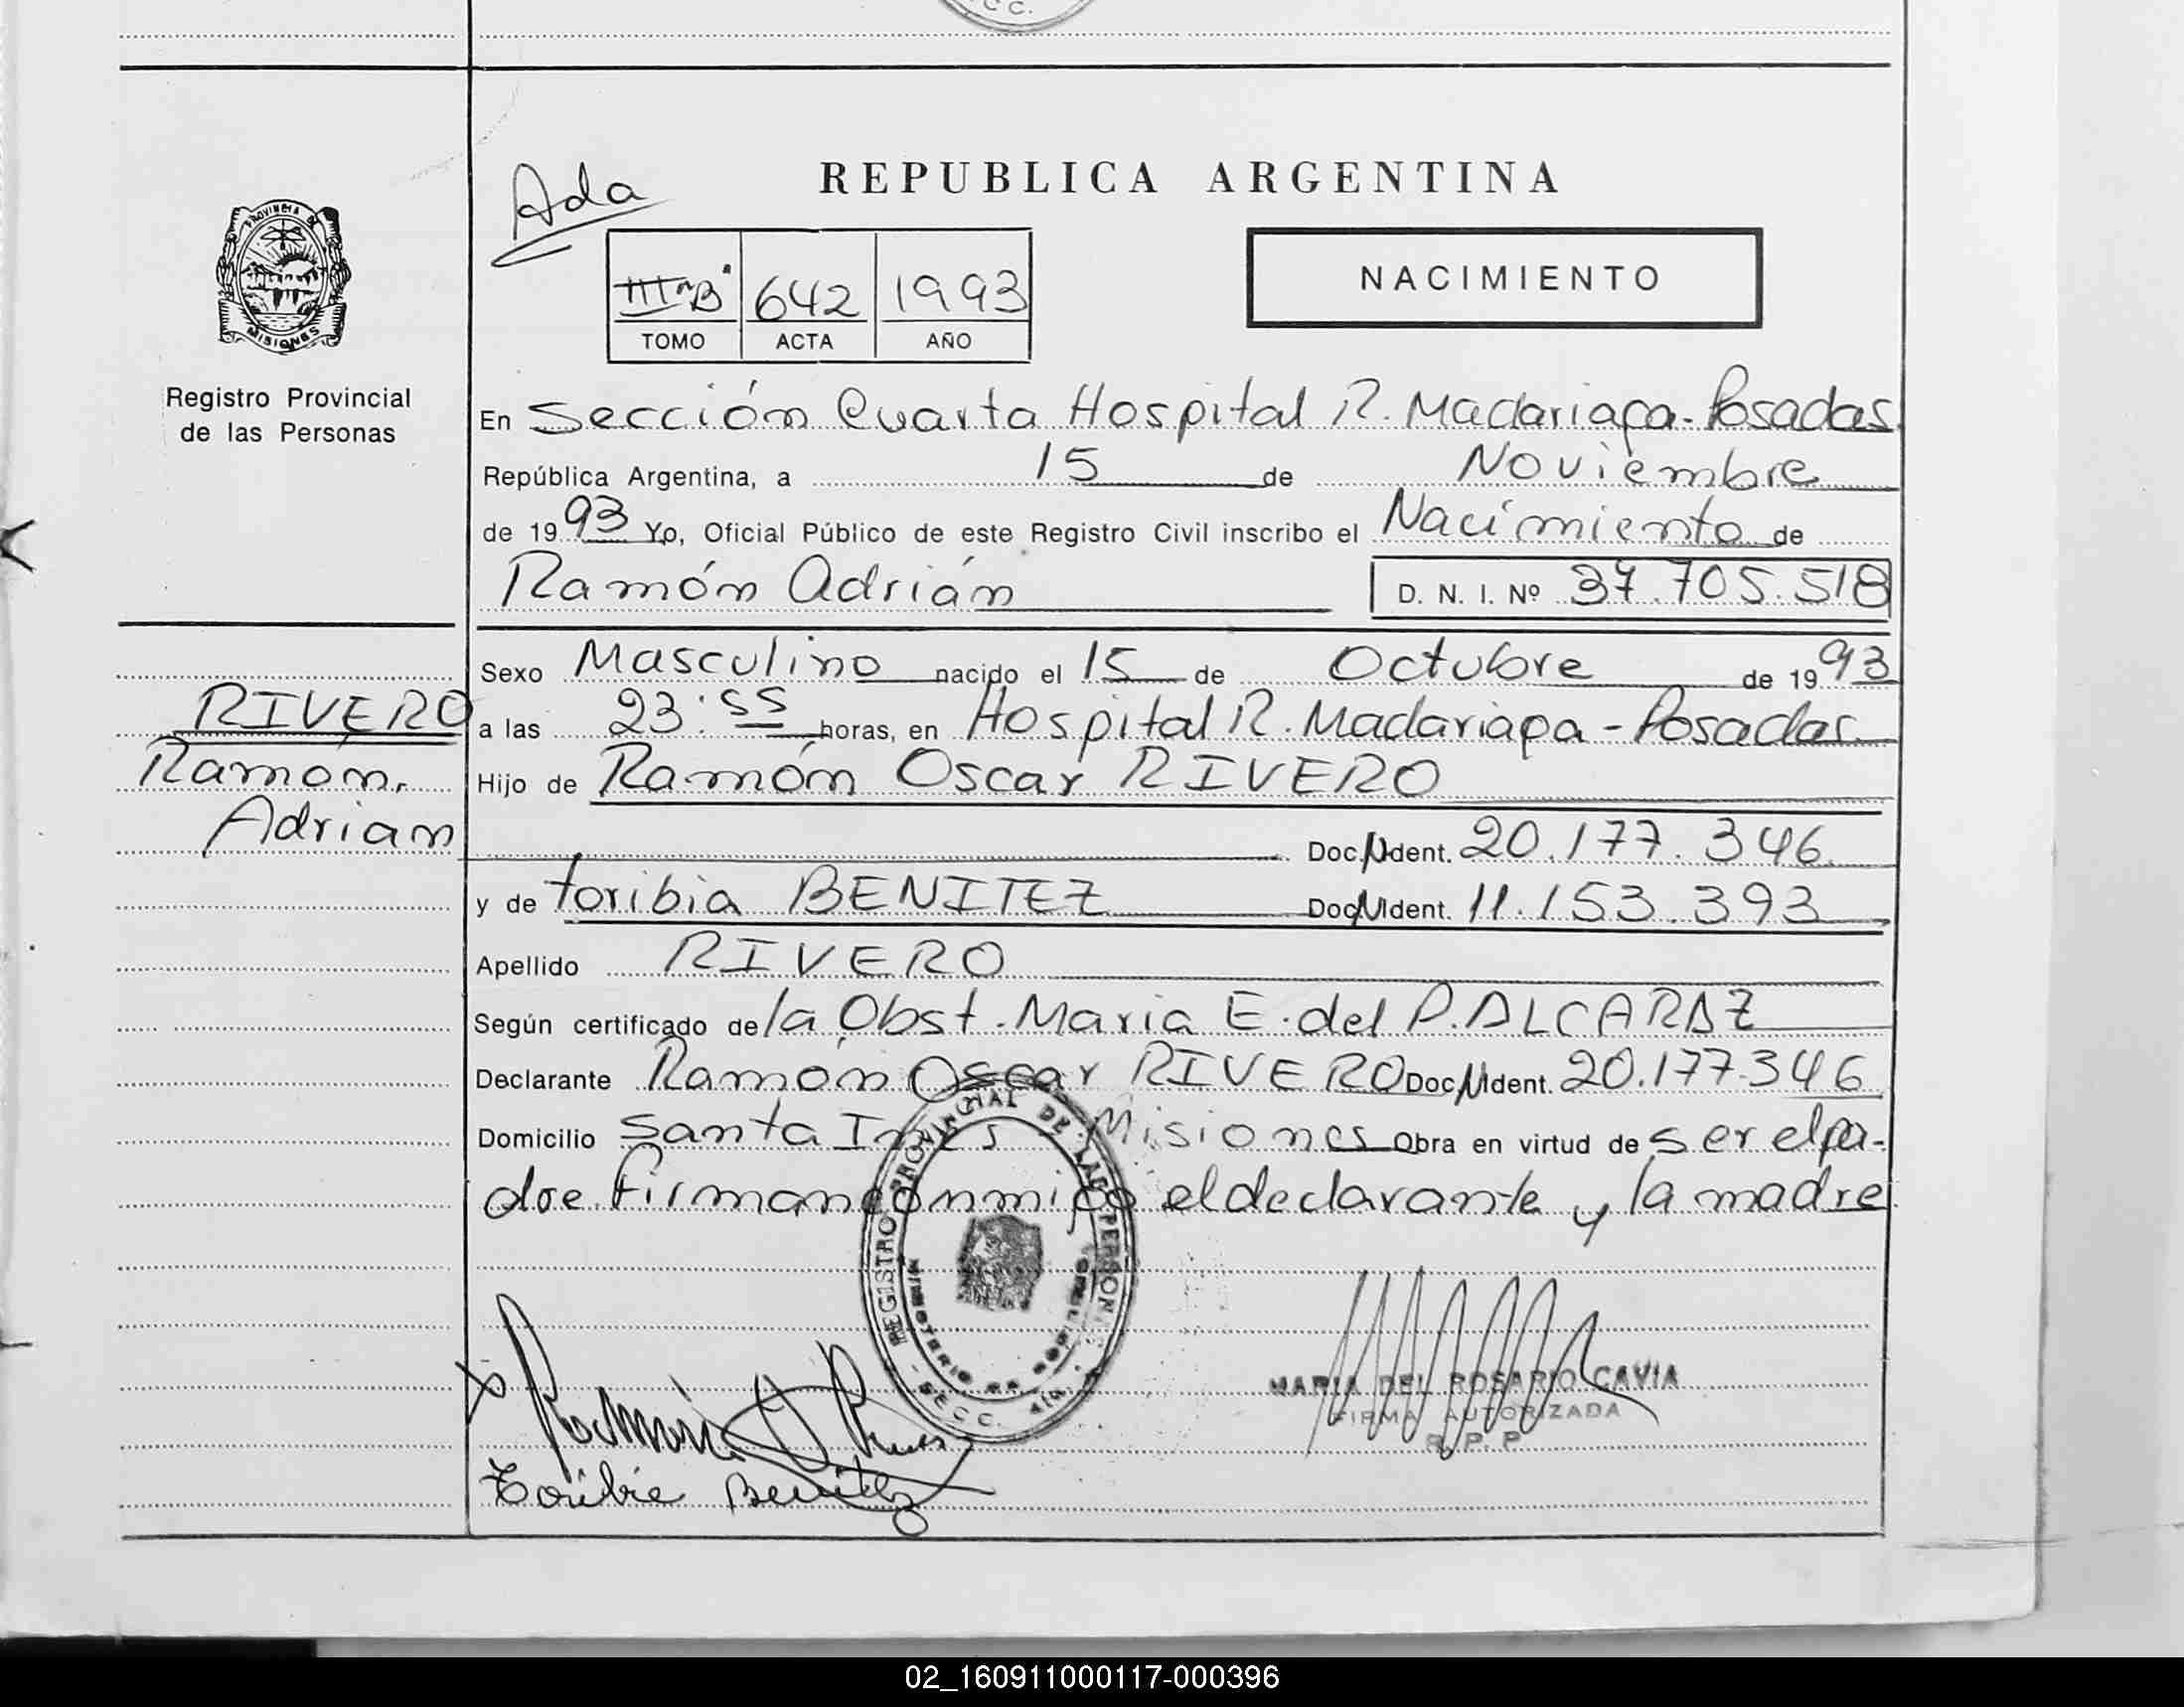 C C.
Ada
REPUBLICA ARGENTINA
PROVINCIA DE
MISIONES
III "B" 642 1993
TOMO ACTA AÑO
NACIMIENTO
Registro Provincial
de las Personas
En Sección Cuarta Hospital R. Madariaga - Posadas
República Argentina, a 15 de Noviembre
de 1993 Yo, Oficial Público de este Registro Civil inscribo el Nacimiento de
Ramón Adrián D. N. I. Nº 37.705.518
Sexo Masculino nacido el 15 de Octubre de 1993
RIVERO
Ramón,
Adrian
a las 23:55 horas, en Hospital R. Madariaga - Posadas
Hijo de Ramón Oscar RIVERO
Doc. Ident. 20.177.346
y de toribia BENITEZ Doc. Ident. 11.153.393
Apellido RIVERO
Según certificado de la Obst. Maria E. del P. ALCARAZ
Declarante Ramón Oscar RIVERO Doc. Ident. 20.177.346
Domicilio Santa Inés Misiones Obra en virtud de ser el pa-
dre. firman conmigo el declarante y la madre
REGISTRO PROVINCIAL DE LAS PERSONAS
SECC. 4ta.
MARIA DEL ROSARIO CAVIA
FIRMA AUTORIZADA
R. P. P.
Toribia Benitez
02_160911000117-000396